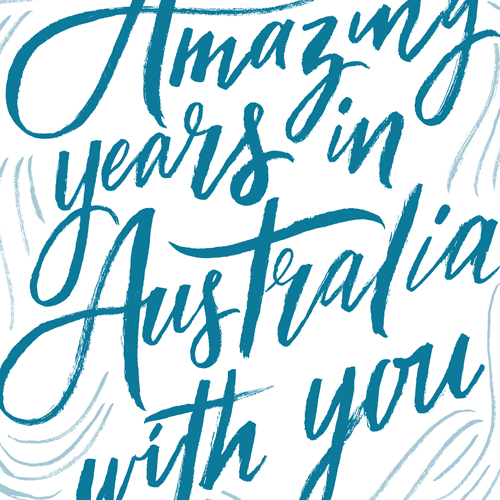 Amazing
years in
Australia
with you